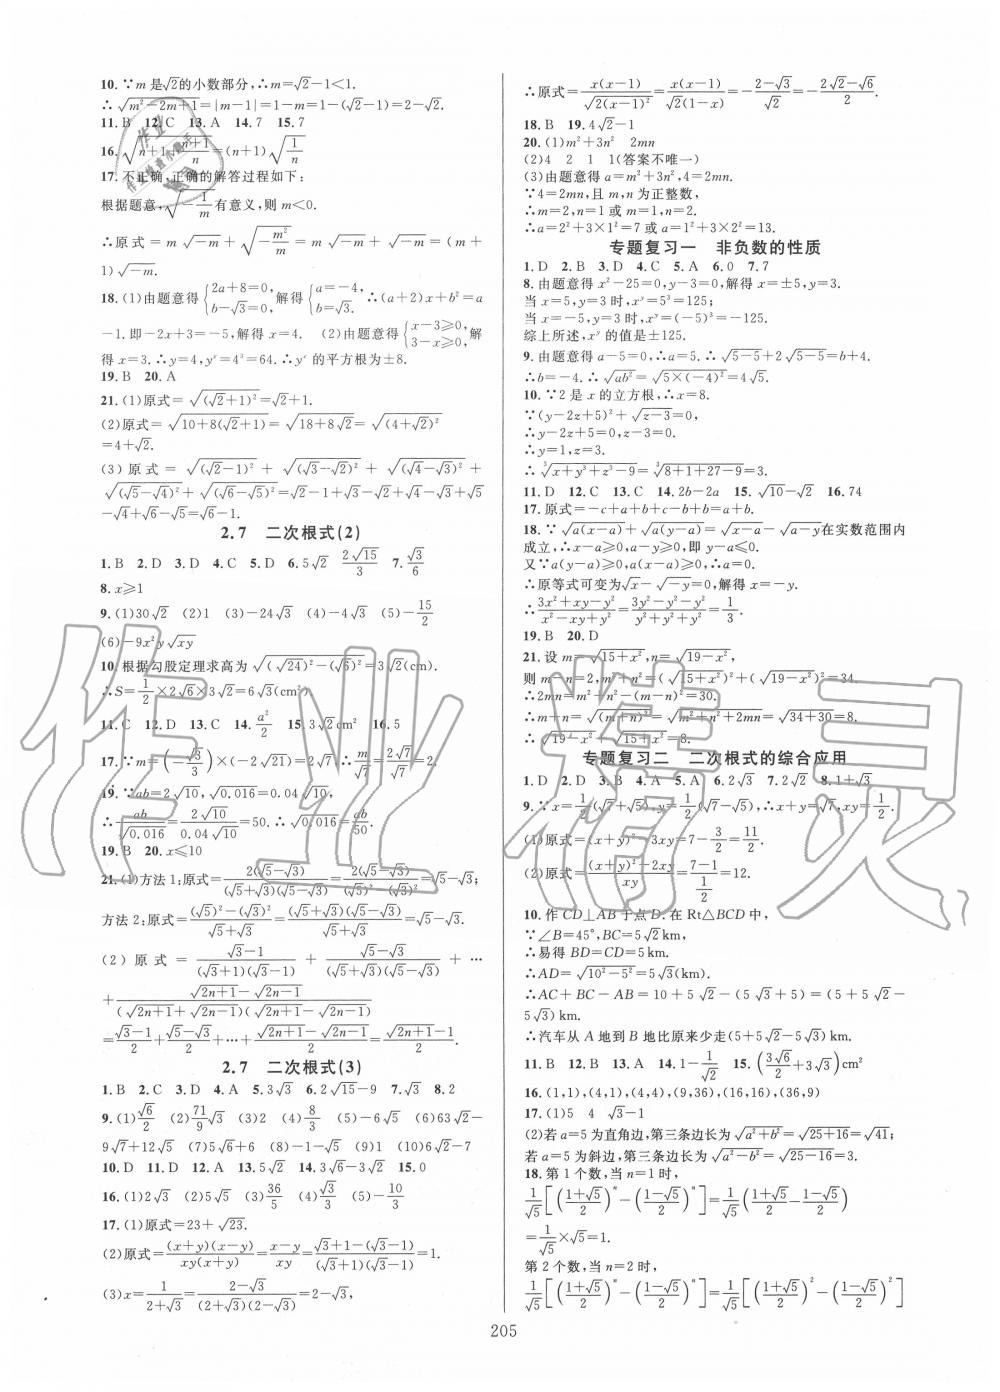 10. ∵m 是√2的小数部分,∴m=√2-1<1.
∴√(m²-2m+1)=|m-1|=1-m=1-(√2-1)=2-√2.
11. B 12. C 13. A 14. 7 15. 7
16. √(n+1/(n+1)... 
17. 不正确,正确的解答过程如下:
根据题意,√(-1/m)有意义,则 m<0.
∴原式=m√(-m)+√(-m²/m)=m√(-m)+√(-m)=(m+
1)√(-m).
18. (1)由题意得{2a+8=0, b-√3=0, 解得{a=-4, b=√3. ∴(a+2)x+b²=a
-1. 即-2x+3=-5,解得 x=4. (2)由题意得{x-3≥0, 3-x≥0, 解
得 x=3. ∴y=4,yˣ=4³=64. ∴yˣ 的平方根为±8.
19. B 20. A
21. (1)原式=√((√2+1)²)=√2+1.
(2)原式=√(10+8(√2+1))=√(18+8√2)=√((4+√2)²)
=4+√2.
(3)原式=√((√2-1)²)+√((√3-√2)²)+√((√4-√3)²)+
√((√5-√4)²)+√((√6-√5)²)=√2-1+√3-√2+√4-√3+√5
-√4+√6-√5=√6-1.
2.7 二次根式(2)
1. B 2. D 3. D 4. C 5. D 6. 5√2 2√15/3 7. √3/6
8. x≥1
9. (1)30√2 (2)1 (3)-24√3 (4)-4√3 (5)-15/2
(6)-9x²y√(xy)
10. 根据勾股定理求高为√((√24)²-(√6)²)=3√2(cm).
∴S=1/2×2√6×3√2=6√3(cm²).
11. C 12. D 13. C 14. a²/2 15. 3√2 cm² 16. 5
17. ∵m=(-√3/3)×(-2√21)=2√7,∴m/√7=2√7/√7=2.
19. ∵ab=2√10,√0.016=0.04√10,
∴ab/√0.016=2√10/(0.04√10)=50. ∴√0.016=ab/50.
19. B 20. x≤10
21. (1)方法 1:原式=2(√5-√3)/((√5+√3)(√5-√3))=2(√5-√3)/2=√5-√3;
方法 2:原式=((√5)²-(√3)²)/(√5+√3)=(√5+√3)(√5-√3)/(√5+√3)=√5-√3.
(2)原式=(√3-1)/((√3+1)(√3-1))+(√5-√3)/((√5+√3)(√5-√3))+…
+(√(2n+1)-√(2n-1))/((√(2n+1)+√(2n-1))(√(2n+1)-√(2n-1)))
=(√3-1)/2+(√5-√3)/2+…+(√(2n+1)-√(2n-1))/2=(√(2n+1)-1)/2.
2.7 二次根式(3)
1. B 2. C 3. D 4. A 5. 3√3 6. 2√15-9 7. √3 8. 2
9. (1)√6/2 (2)71/9√3 (3)2 (4)8/3 (5)-6√5 (6)63√2-
9√7+12√5 (7)5√6+6 (8)-1-√5 (9)1 (10)6√2-7
10. D 11. D 12. A 13. 5√2 14. 3√6-3√2 15. 0
16. (1)2√3 (2)5√5 (3)36/5 (4)√3/3 (5)-10/3
17. (1)原式=23+√23.
(2)原式=(x+y)(x-y)/(xy(x+y))=(x-y)/(xy)=(√3+1-(√3-1))/((√3+1)(√3-1))=1.
(3)x=1/(2+√3)=(2-√3)/((2+√3)(2-√3))=2-√3,
∴原式=x(x-1)/√(2(x-1)²)=x(x-1)/(√2(1-x))=-(2-√3)/√2=-(2√2-√6)/2.
18. B 19. 4√2-1
20. (1)m²+3n² 2mn
(2)4 2 1 1(答案不唯一)
(3)由题意得 a=m²+3n²,4=2mn.
∵4=2mn,且 m,n 为正整数,
∴m=2,n=1 或 m=1,n=2.
∴a=2²+3×1²=7 或 a=1²+3×2²=13.
专题复习一 非负数的性质
1. D 2. B 3. D 4. C 5. A 6. 0 7. 7
8. 由题意得 x²-25=0,y-3=0,解得 x=±5,y=3.
当 x=5,y=3 时,xʸ=5³=125;
当 x=-5,y=3 时,xʸ=(-5)³=-125.
综上所述,xʸ 的值是±125.
9. 由题意得 a-5=0,∴a=5. ∴√(5-5)+2√(5-5)=b+4.
∴b=-4. ∴√(ab²)=√(5×(-4)²)=4√5.
10. ∵2 是 x 的立方根,∴x=8.
∵(y-2z+5)²+√(z-3)=0,
∴y-2z+5=0,z-3=0,
∴y=1,z=3.
∴∛(x+y³+z³-9)=∛(8+1+27-9)=3.
11. D 12. C 13. C 14. 2b-2a 15. √10-√2 16. 74
17. 原式=-c+a+b+c-b+b=a+b.
18. ∵√(a(x-a))+√(a(y-a))=√(x-a)-√(a-y)在实数范围内
成立,∴x-a≥0,a-y≥0,即 y-a≤0.
又∵a(y-a)≥0,a(x-a)≥0,∴a=0,
∴原等式可变为√x-√(-y)=0,解得 x=-y.
∴(3x²+xy-y²)/(x²-xy+y²)=(3y²-y²-y²)/(y²+y²+y²)=1/3.
19. B 20. D
21. 设 m=√(15+x²),n=√(19-x²),
则 m-n=2,m²+n²=(√(15+x²))²+(√(19-x²))²=34.
∴2mn=m²+n²-(m-n)²=30.
∴m+n=√((m+n)²)=√(m²+n²+2mn)=√(34+30)=8.
∴√(19-x²)+√(15+x²)=8.
专题复习二 二次根式的综合应用
1. D 2. D 3. B 4. A 5. A 6. 2√3 7. 2√2 8. 1+√3
9. ∵x=1/2(√7+√5),y=1/2(√7-√5),∴x+y=√7,xy=1/2.
(1)原式=(x+y)²-3xy=7-3/2=11/2.
(2)原式=((x+y)²-2xy)/(xy)=(7-1)/(1/2)=12.
10. 作 CD⊥AB 于点 D. 在 Rt△BCD 中,
∵∠B=45°,BC=5√2 km,
∴易得 BD=CD=5 km.
∴AD=√(10²-5²)=5√3(km).
∴AC+BC-AB=10+5√2-(5√3+5)=(5+5√2-
5√3) km.
∴汽车从 A 地到 B 地比原来少走(5+5√2-5√3) km.
11. B 12. B 13. A 14. 1-1/√2 15. (3√6/2+3√3) cm²
16. (1,1),(4,1),(4,4),(9,36),(16,16),(36,9)
17. (1)5 4 √3-1
(2)若 a=5 为直角边,第三条边长为√(a²+b²)=√(25+16)=√41;
若 a=5 为斜边,第三条边长为√(a²-b²)=√(25-16)=3.
18. 第 1 个数,当 n=1 时,
1/√5[((1+√5)/2)ⁿ-((1-√5)/2)ⁿ]=1/√5((1+√5)/2-(1-√5)/2)
=1/√5×√5=1.
第 2 个数,当 n=2 时,
1/√5[((1+√5)/2)ⁿ-((1-√5)/2)ⁿ]=1/√5[((1+√5)/2)²-((1-√5)/2)²]
205
作业精灵